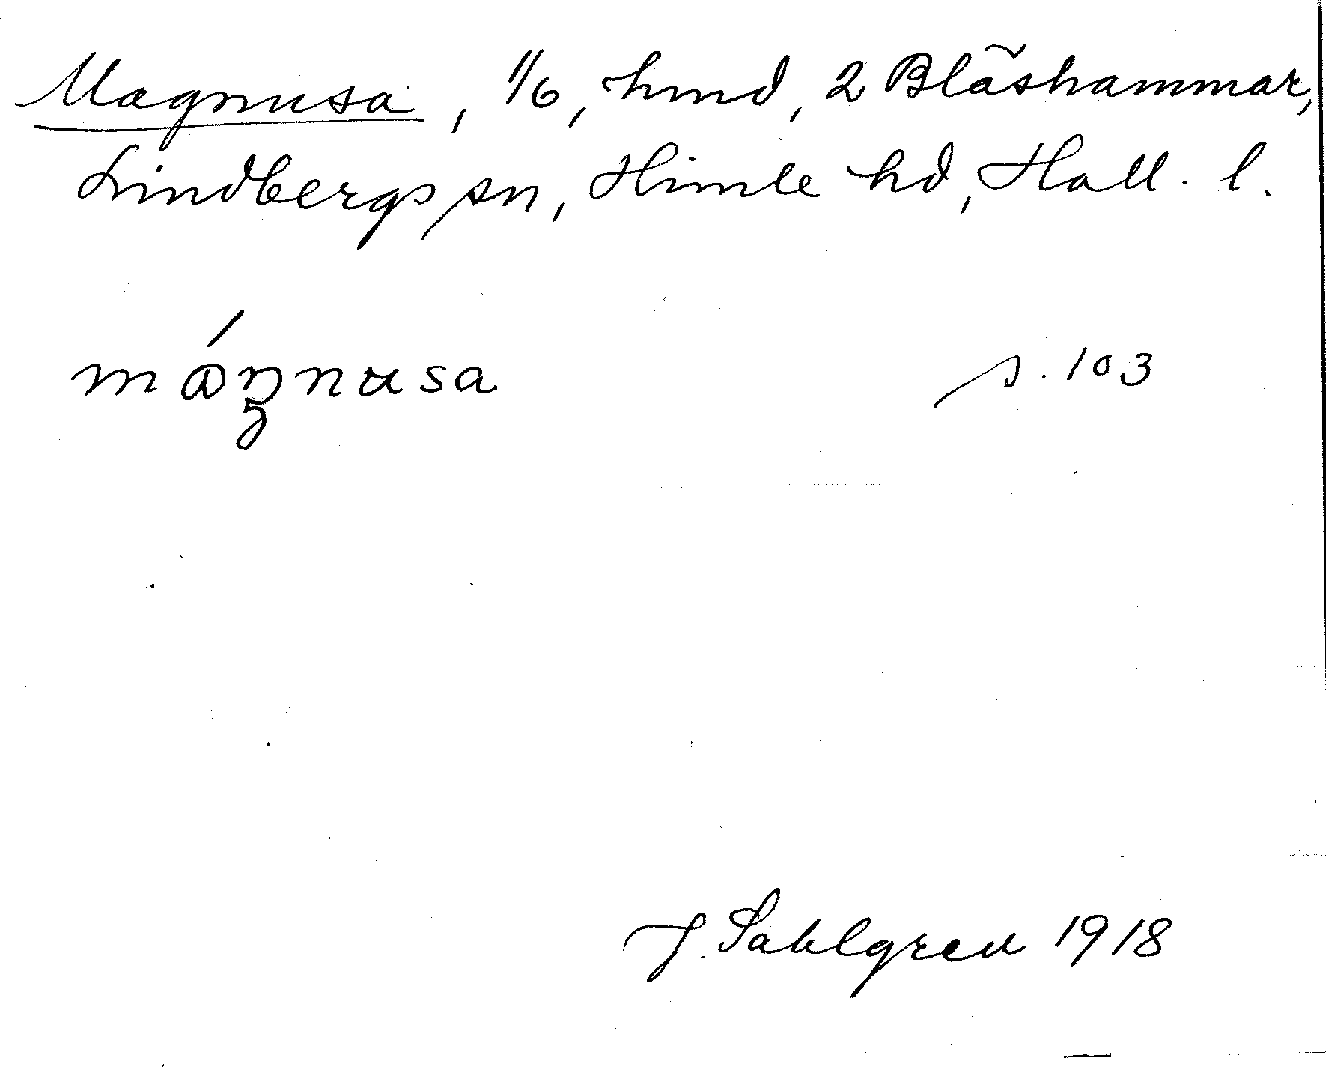 Magnusa, 1/6, hmd, 2 Blåshammar,
Lindbergs sn, Himle hd, Hall. l.
máŋnusa s. 103
J. Sahlgren 1918